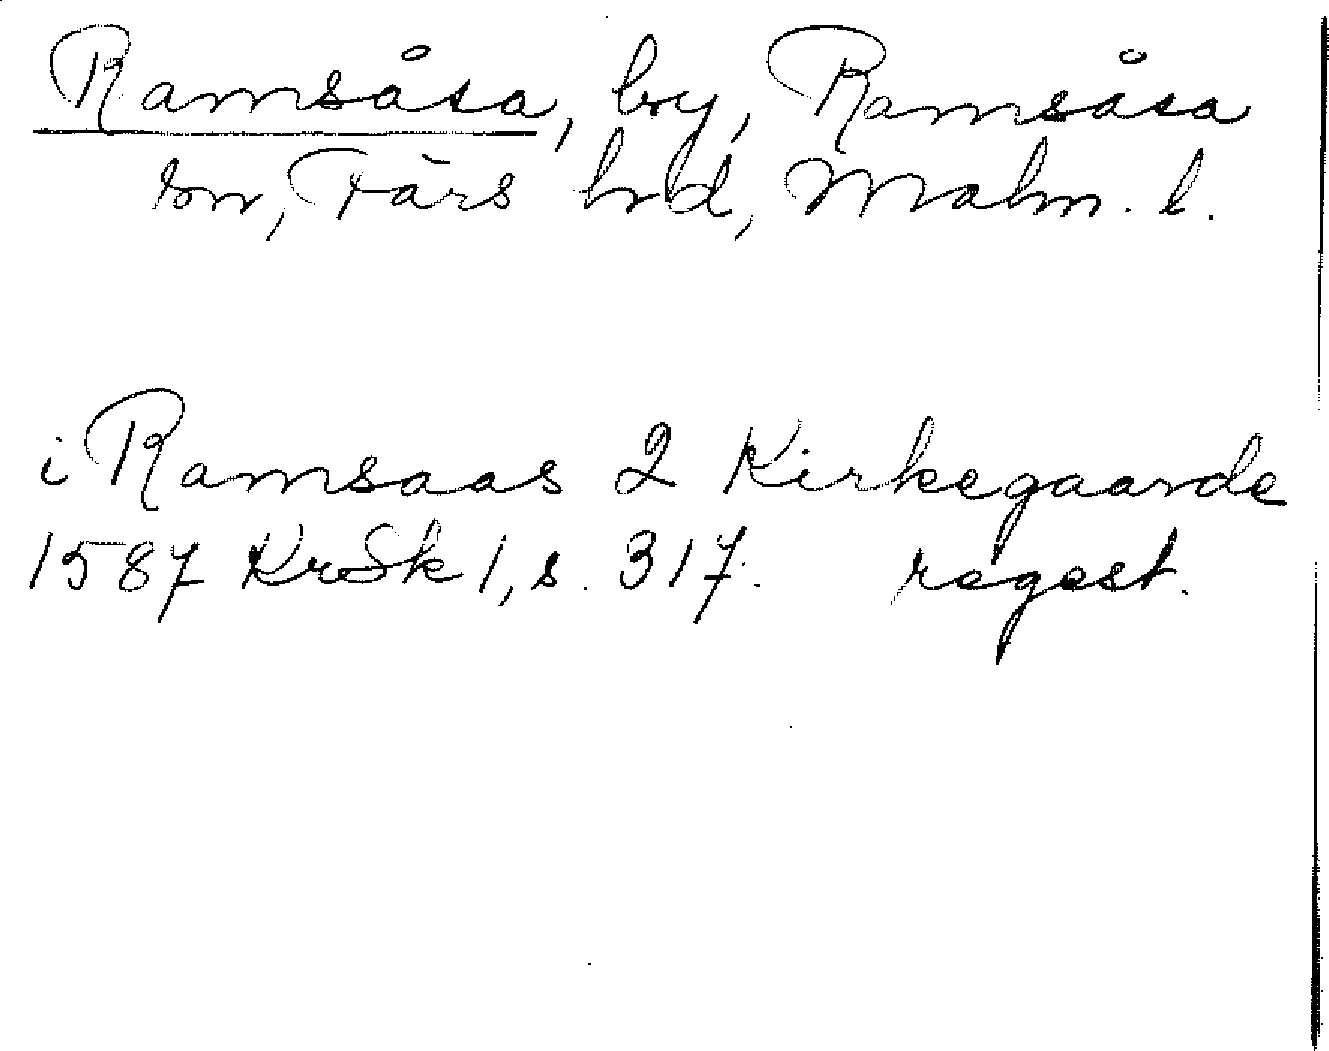 Ramsåsa, by, Ramsåsa
sn, Färs hd, Malm. l.
i Ramsaas 2 Kirkegaarde
1587 KrSk 1, s. 317. regest.